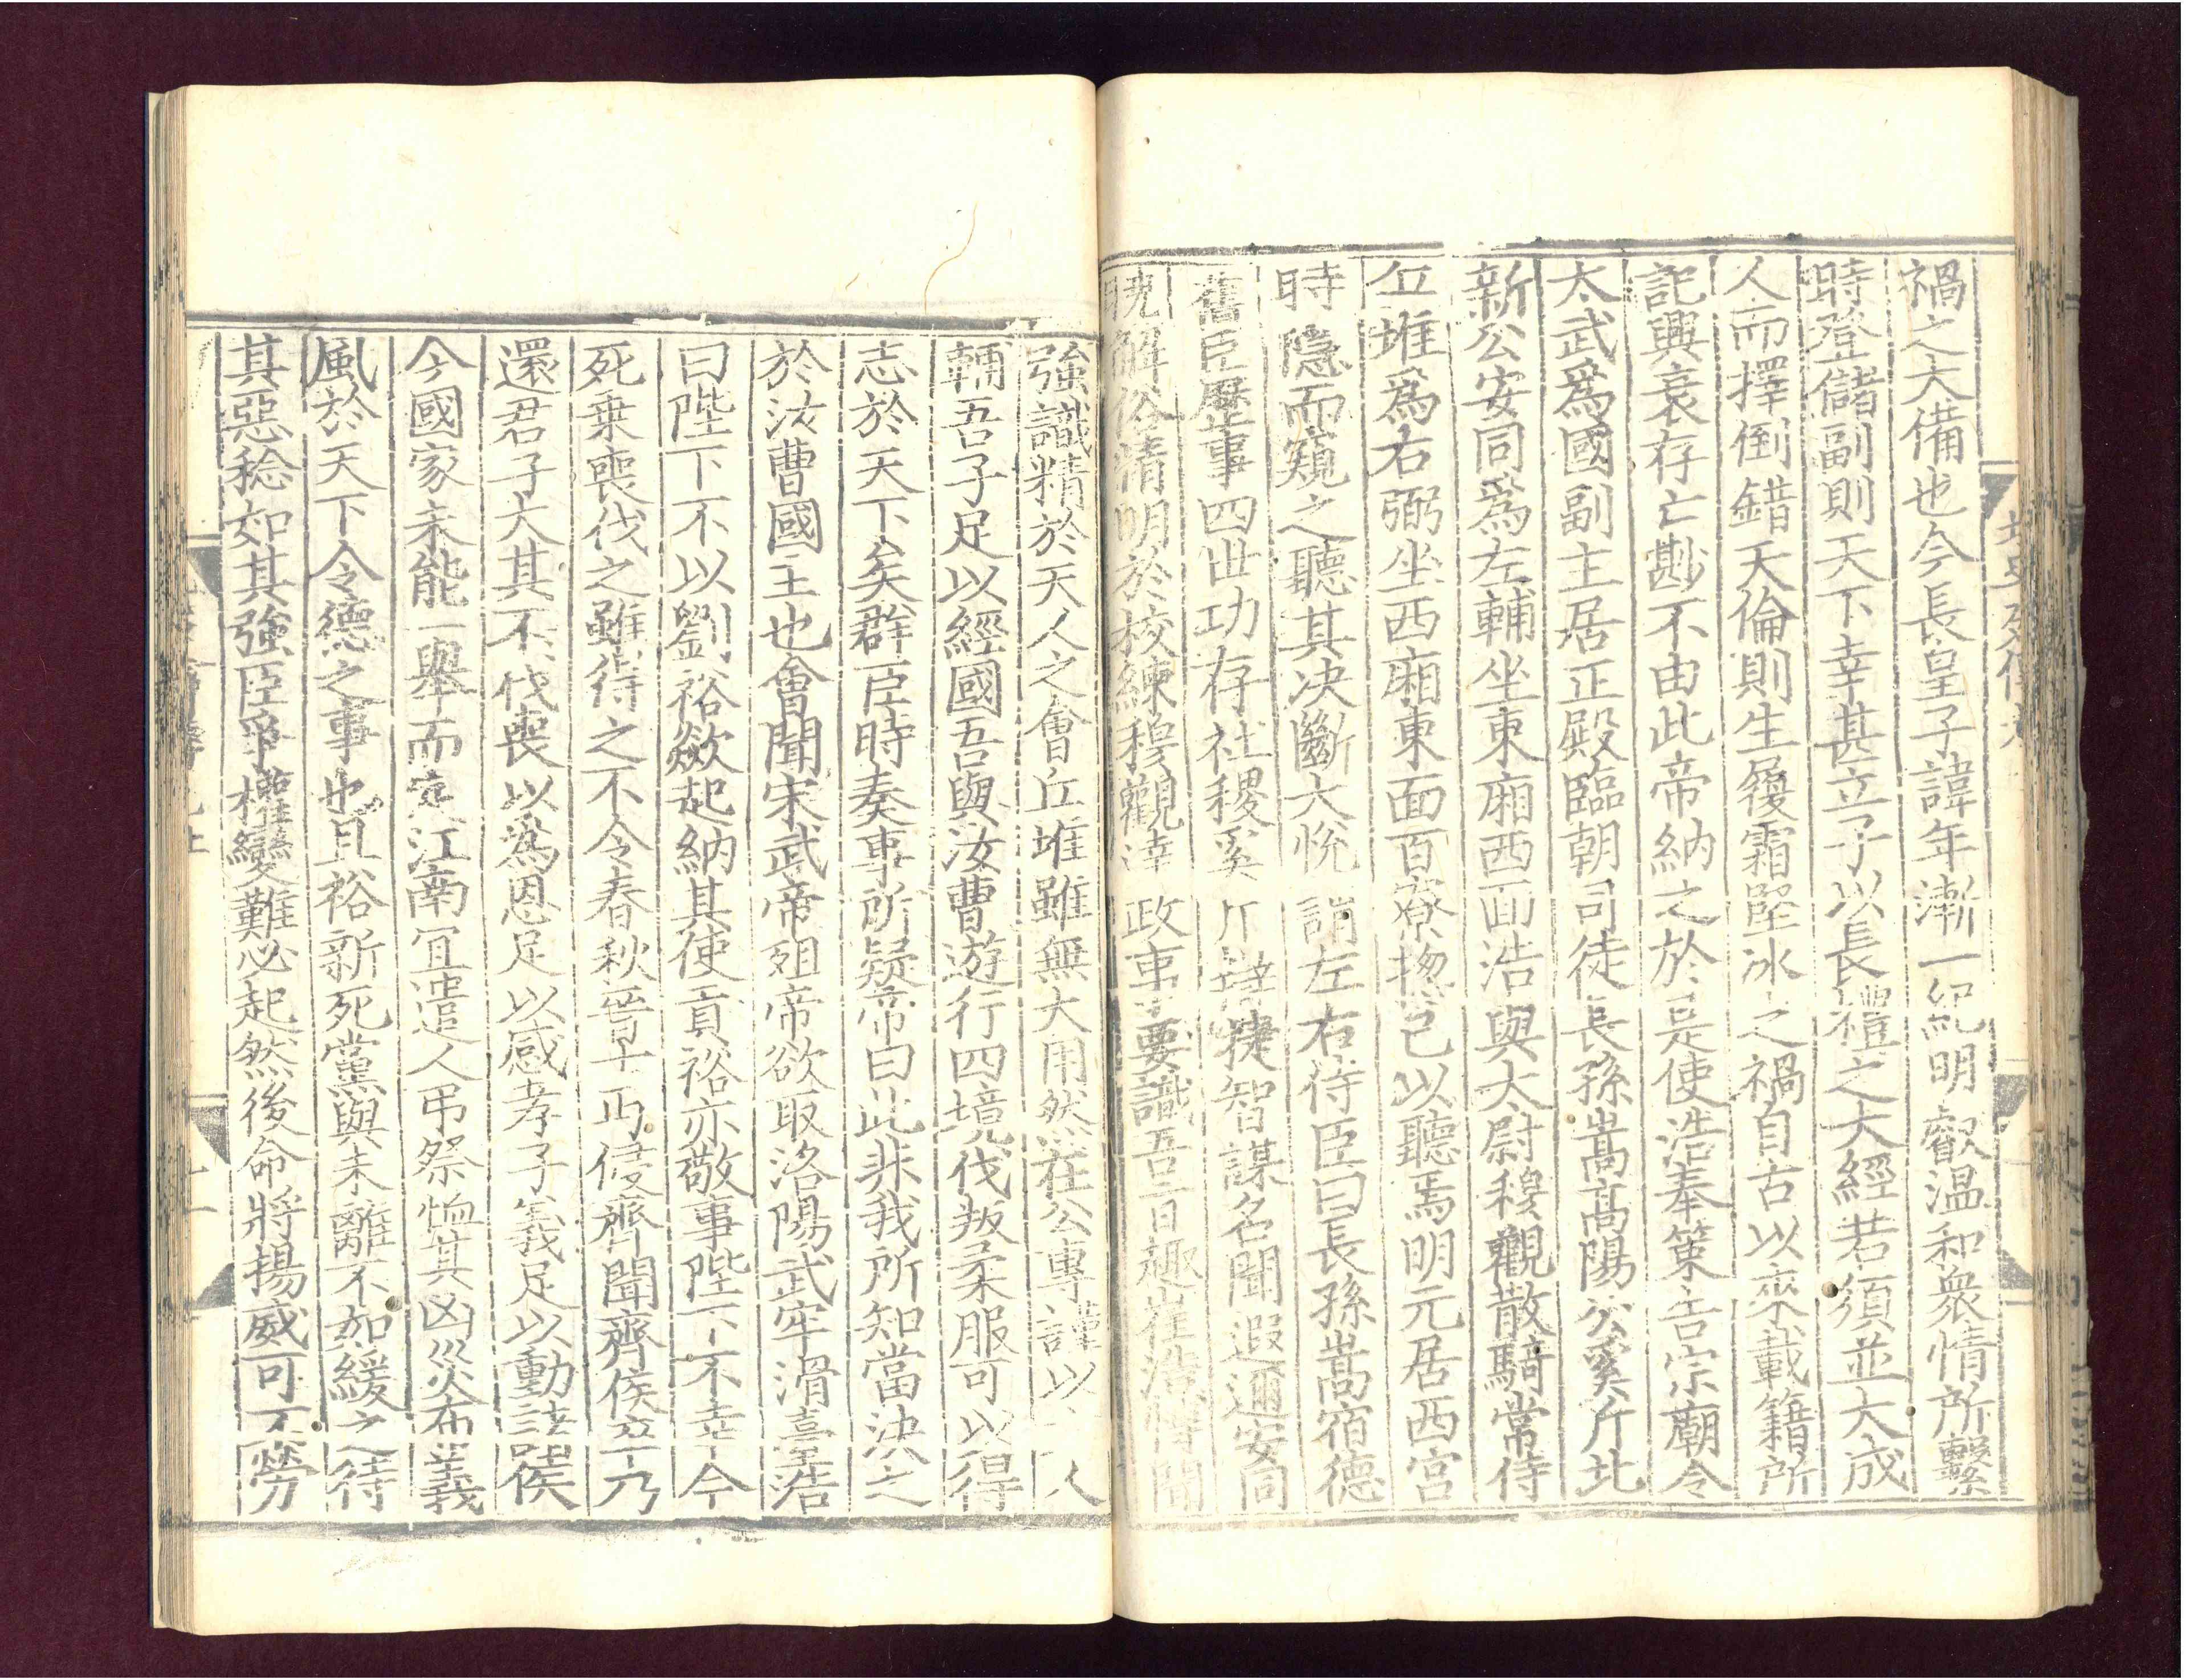 禍之大備也今長皇子諱年漸一紀明叡温和衆情所繫
時登儲副則天下幸甚立子以長禮之大經若須並大成
人而擇倒錯天倫則生履霜堅冰之禍自古以來載籍所
記興衰存亡尠不由此帝納之於是使浩奉策告宗廟令
太武爲國副主居正殿臨朝司徒長孫嵩高陽公奚斤北
新公安同爲左輔坐東廂西面浩與太尉穆觀散騎常侍
丘堆爲右弼坐西廂東面百寮揔己以聽焉明元居西宮
時隱而窺之聽其决斷大悅謂左右侍臣曰長孫嵩宿德
舊臣歷事四世功存社稷奚斤辯捷智謀名聞遐邇安同
曉解俗情明於校練穆觀達政事要識吾旨趣崔浩博聞
強識精於天人之會丘堆雖無大用然在公專謹以 人
輔吾子足以經國吾與汝曹遊行四境伐叛柔服可以得
志於天下矣群臣時奏事所疑帝曰此非我所知當决之
於汝曹國主也會聞宋武帝殂帝欲取洛陽武牢滑臺浩
曰陛下不以劉裕歘起納其使貢裕亦敬事陛下不幸今
死乗喪伐之雖得之不令春秋晉士丐侵齊聞齊侯卒乃
還君子大其不伐喪以爲恩足以感孝子義足以動諸侯
今國家未能一舉而定江南宜遣人弔祭恤其凶災布義
風於天下令德之事也且裕新死黨與未離不如緩之待
其惡稔如其強臣爭權變難必起然後命將揚威可不勞